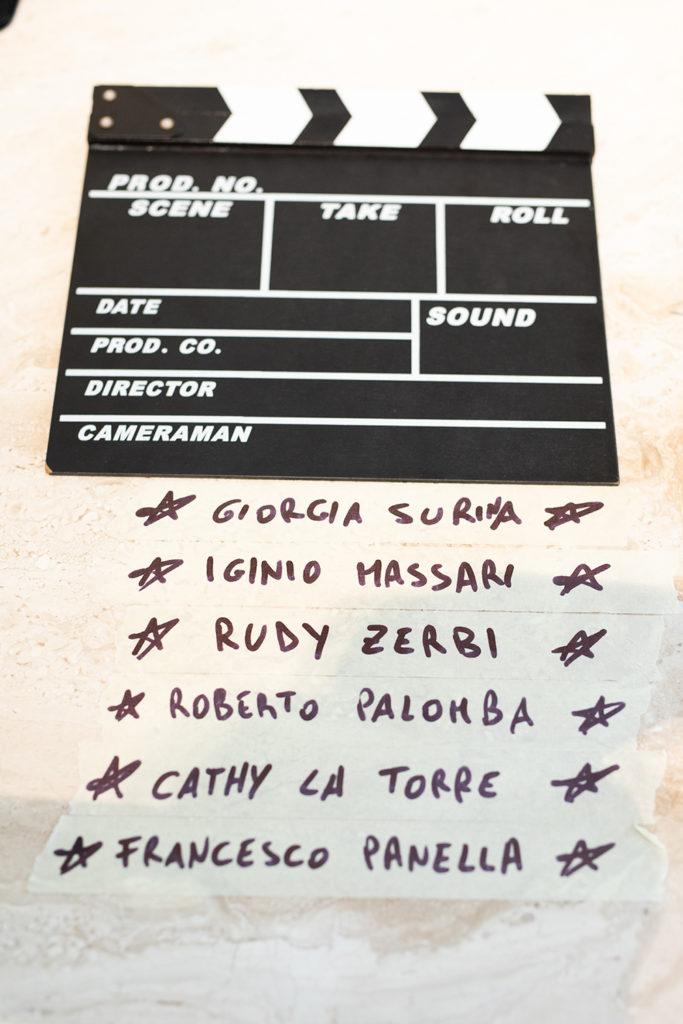 PROD. NO.
SCENE TAKE ROLL
DATE
SOUND
PROD. CO.
DIRECTOR
CAMERAMAN
GIORGIA SURINA
IGINIO MASSARI
RUDY ZERBI
ROBERTO PALOMBA
CATHY LA TORRE
FRANCESCO PANELLA